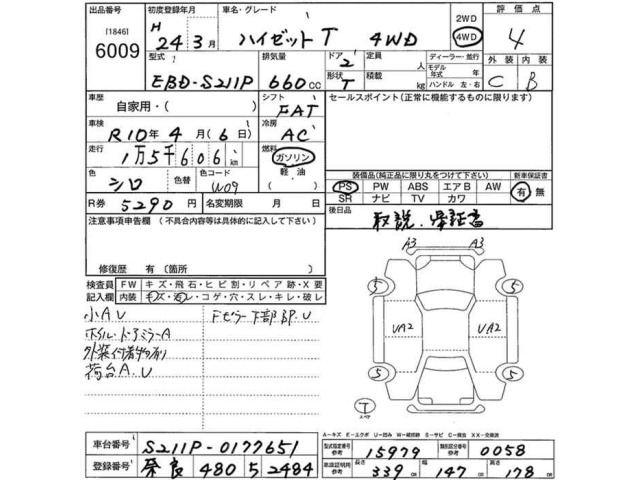 出品番号
[1846]
6009
初度登録年月
H 24年3月
車名・グレード
ハイゼットT 4WD
2WD
4WD
評価点
4
型式
EBD-S211P
排気量
660cc
ドア
2
形状
T
定員
人
積載
kg
ディーラー・並行
モデル年式 年
ハンドル 左・右
外装
C
内装
B
車歴
自家用・( )
シフト
FAT
セールスポイント(正常に機能するものに限ります)
車検
R10年4月(6日)
冷房
AC
走行
1万5千606km
燃料
ガソリン
軽油
( )
色
シロ
色替
色コード
W09
R券
5290円
名変期限
月 日
装備品(純正品に限り丸をつけて下さい)
PS PW ABS エアB AW
SR ナビ TV カワ
新車保証書
有・無
後日品
取説、保証書
注意事項申告欄(不具合内容等は具体的に記入して下さい)
修復歴 有(箇所 )
検査員記入欄
FW キズ・飛石・ヒビ割・リペア跡・X要
内装 キズ・汚レ・コゲ・穴・スレ・キレ・破レ
小A.U
ホイル・ドアミラーA
外装付着物有り
荷台A.U
Fピラー下部 U
A3 A3
5 5
UA2 UA2
5 5
T
スペア
A-キズ E-エクボ U-凹み W-補修跡 S-サビ C-腐蝕 XX-交換済
車台番号
S211P-0177651
登録番号
奈良 480 5 2484
型式指定番号 参考
15979
類別区分番号 参考
0058
車検証明時 参考
長さ
339cm
幅
147cm
高さ
178cm